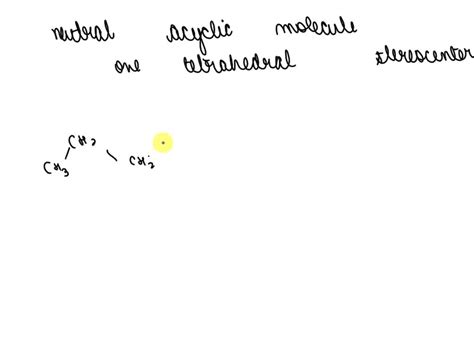 neutral acyclic molecule
one tetrahedral stereocenter
CH2
CH3 CH2